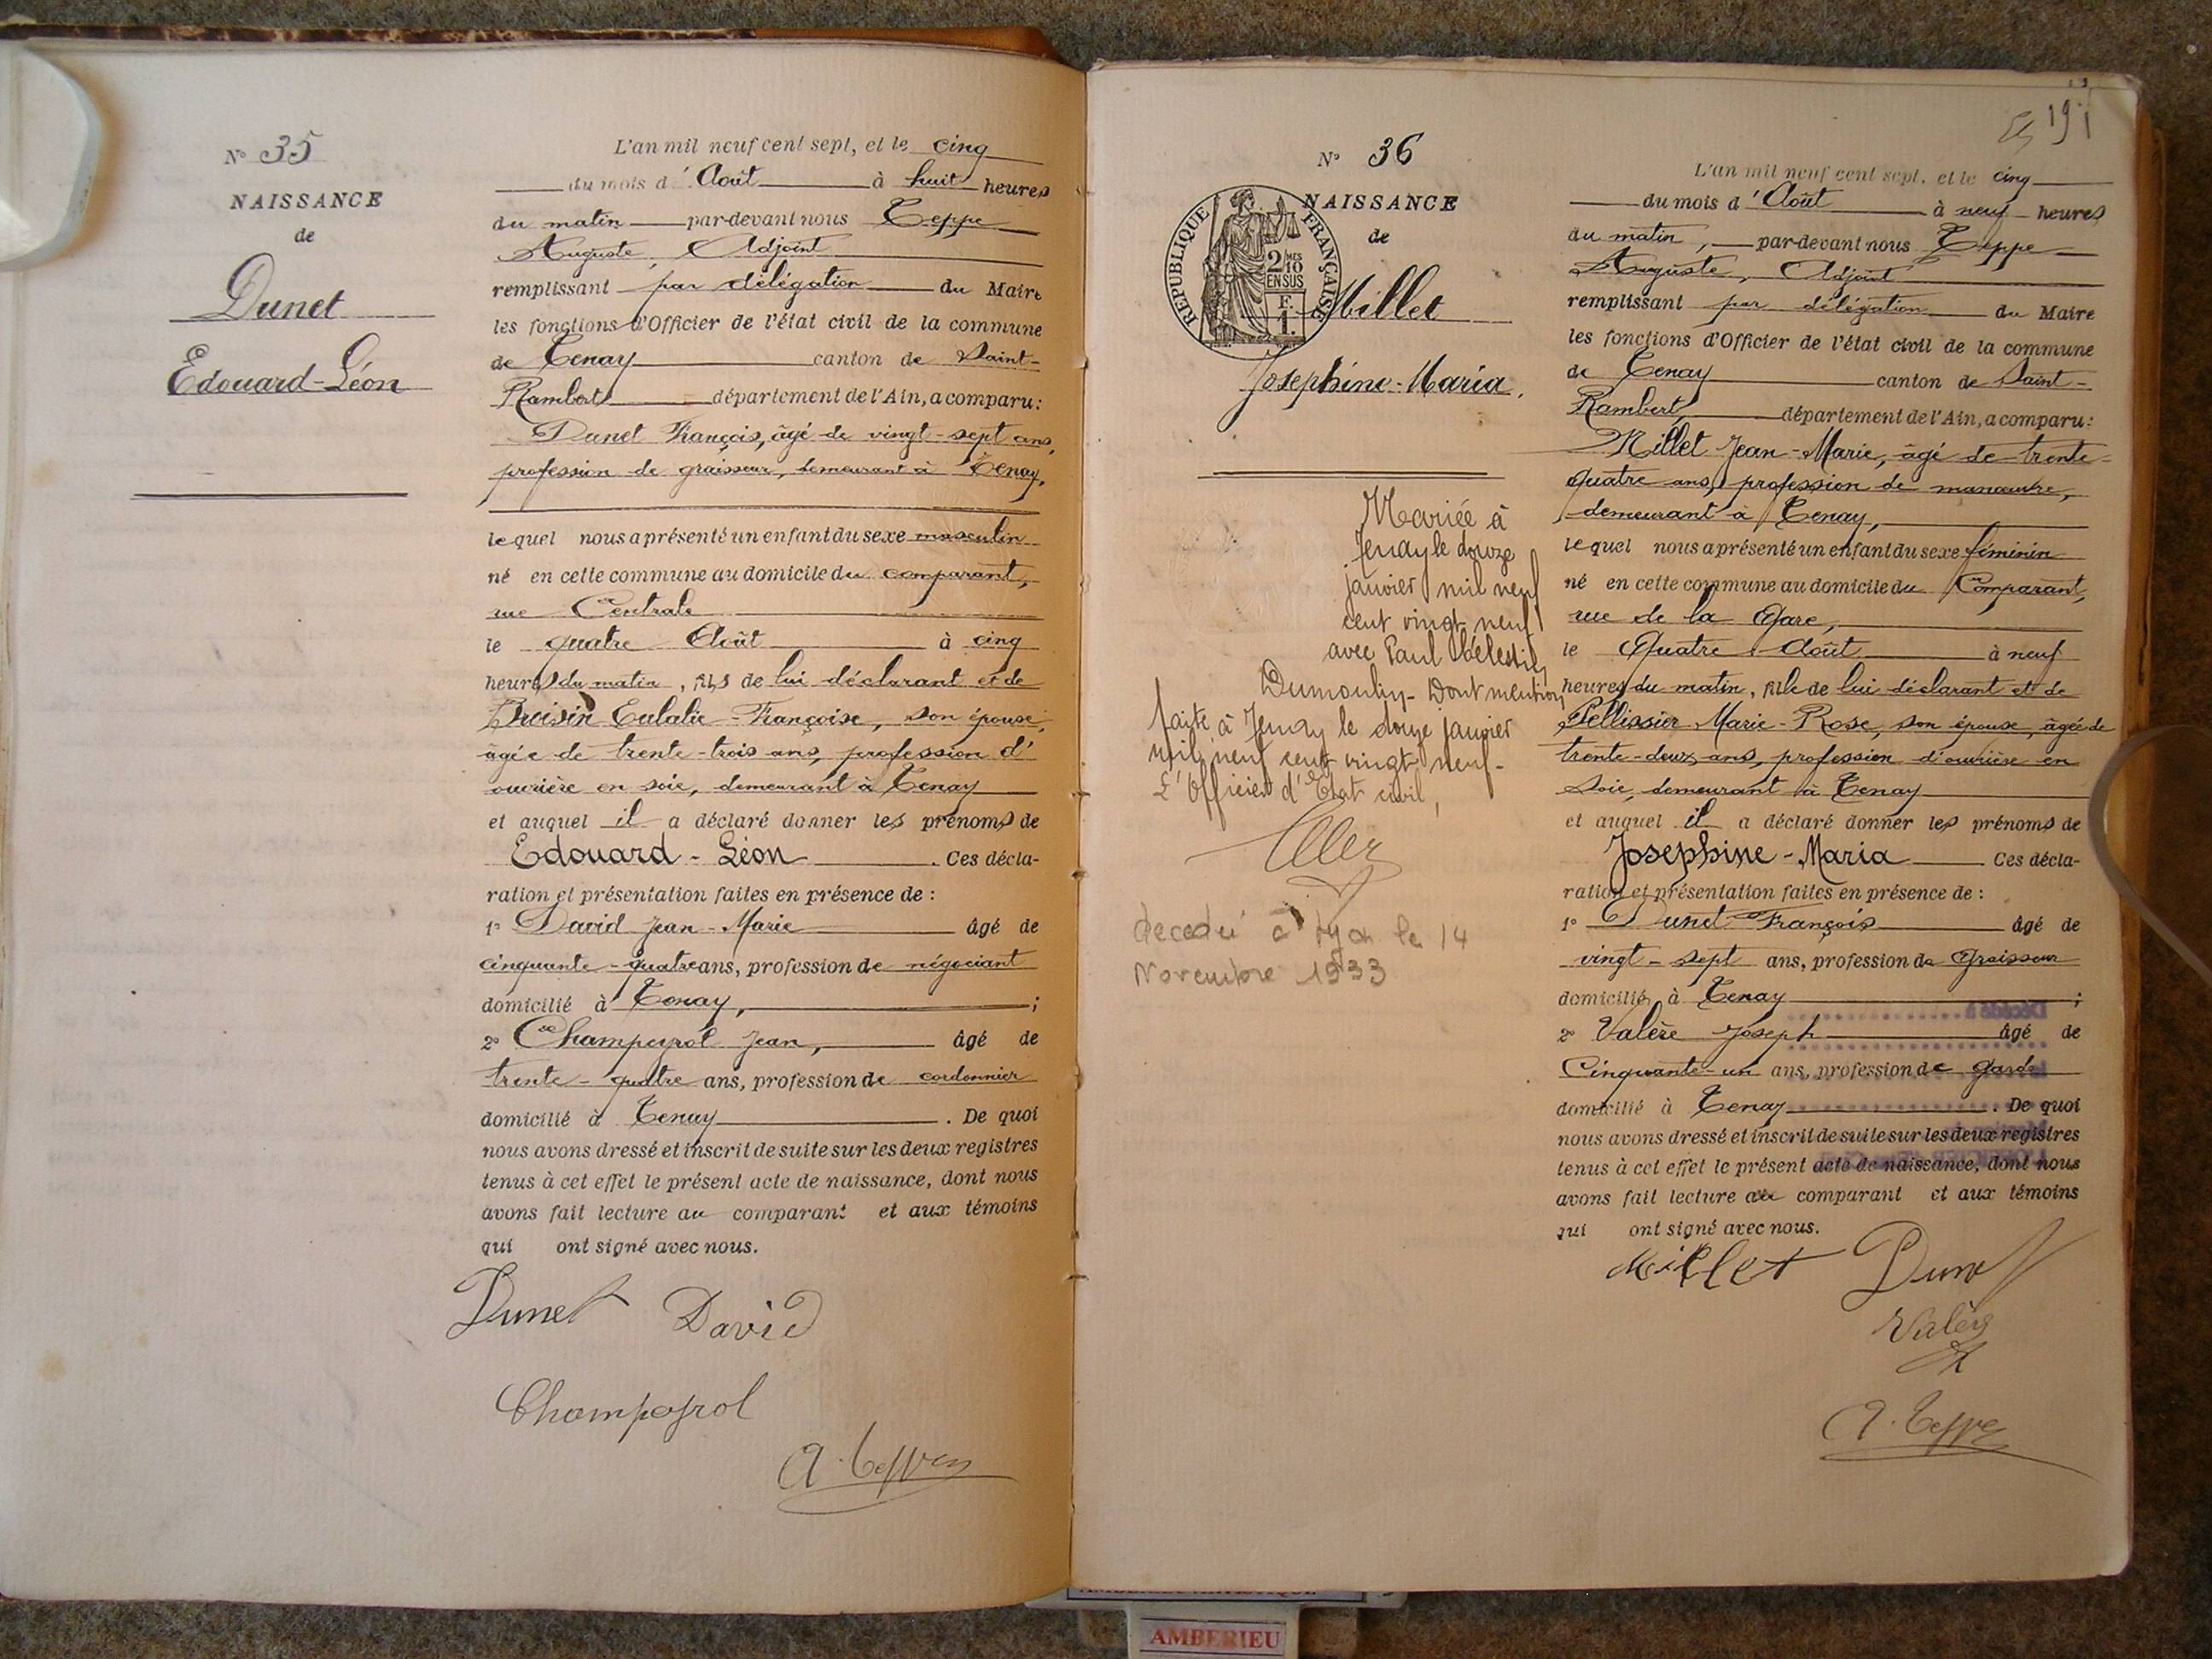 N° 35
NAISSANCE
de
Dunet
Edouard-Léon
L'an mil neuf cent sept, et le cinq
du mois d'Août à huit heures
du matin par-devant nous Teppe
Auguste, Adjoint
remplissant par délégation du Maire
les fonctions d'Officier de l'état civil de la commune
de Tenay canton de Saint-
Rambert département de l'Ain, a comparu:
Dunet François, âgé de vingt-sept ans,
profession de graisseur, demeurant à Tenay,
lequel nous a présenté un enfant du sexe masculin
né en cette commune au domicile du comparant,
rue Centrale
le quatre Août à cinq
heures du matin, fils de lui déclarant et de
Eulalie-Françoise, son épouse,
âgée de trente-trois ans, profession d'
ouvrière en soie, demeurant à Tenay
et auquel il a déclaré donner les prénoms de
Edouard-Léon. Ces décla-
ration et présentation faites en présence de:
1° David Jean-Marie âgé de
cinquante-quatre ans, profession de négociant
domicilié à Tenay, ;
2° Champeyrol Jean, âgé de
trente-quatre ans, profession de cordonnier
domicilié à Tenay. De quoi
nous avons dressé et inscrit de suite sur les deux registres
tenus à cet effet le présent acte de naissance, dont nous
avons fait lecture au comparant et aux témoins
qui ont signé avec nous.
Dunet David
Champeyrol
A. Teppe
191
N° 36
NAISSANCE
de
REPUBLIQUE FRANÇAISE
2/10 MES
EN SUS
F.
1.
Millet
Josephine-Maria.
Mariée à
Tenay le douze
janvier mil neuf
cent vingt neuf
avec Paul Célestin
Dumoulin- Dont mention
faite à Tenay le douze janvier
mil neuf cent vingt neuf-
L'Officier d'Etat civil,
decedé à Lyon le 14
Novembre 1933
L'an mil neuf cent sept, et le cinq
du mois d'Août à neuf heures
du matin, par-devant nous Teppe
Auguste, Adjoint
remplissant par délégation du Maire
les fonctions d'Officier de l'état civil de la commune
de Tenay canton de Saint-
Rambert, département de l'Ain, a comparu:
Millet Jean-Marie, âgé de trente-
quatre ans, profession de manœuvre,
demeurant à Tenay,
lequel nous a présenté un enfant du sexe féminin
né en cette commune au domicile du Comparant,
rue de la Gare,
le Quatre Août à neuf
heures du matin, fille de lui déclarant et de
Pellissier Marie-Rose, son épouse, âgée de
trente-deux ans, profession d'ouvrière en
soie, demeurant à Tenay
et auquel il a déclaré donner les prénoms de
Josephine-Maria Ces décla-
ration et présentation faites en présence de:
1° Dunet François âgé de
vingt-sept ans, profession de Graisseur
domicilié à Tenay ;
2° Valère Joseph âgé de
Cinquante-un ans, profession de garde
domicilié à Tenay. De quoi
nous avons dressé et inscrit de suite sur les deux registres
tenus à cet effet le présent acte de naissance, dont nous
avons fait lecture au comparant et aux témoins
qui ont signé avec nous.
Millet Dunet
Valère
A. Teppe
AMBERIEU